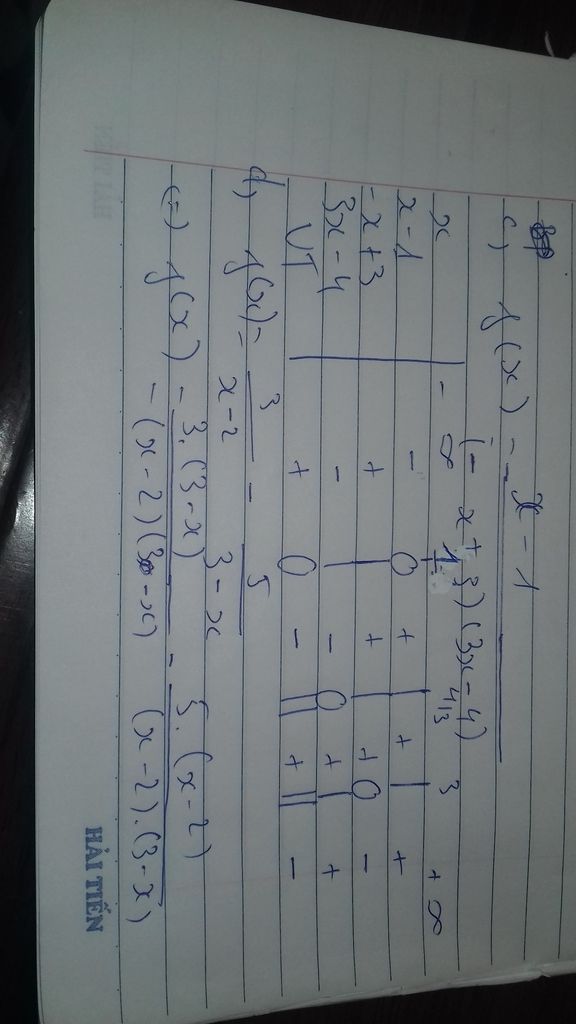 c) f(x) = x - 1 / (- x + 3)(3x - 4)
x - ∞ 1 4/3 3 + ∞
x - 1 - 0 + | + | +
- x + 3 + | + | + 0 -
3x - 4 - | - 0 + | +
VT + 0 - || + || -
d) f(x) = 3 / x - 2 - 5 / 3 - x
(=) f(x) = 3. (3 - x) / (x - 2)(3 - x) - 5. (x - 2) / (x - 2).(3 - x)
HẢI TIẾN